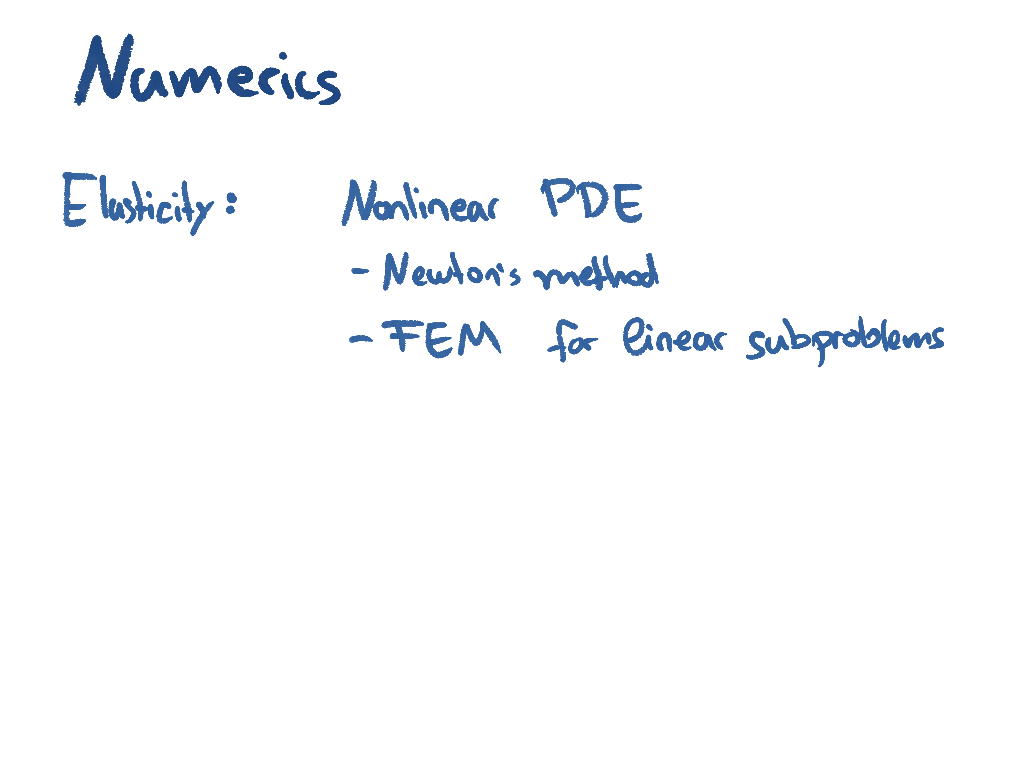 Numerics
Elasticity: Nonlinear PDE
- Newton's method
- FEM for linear subproblems